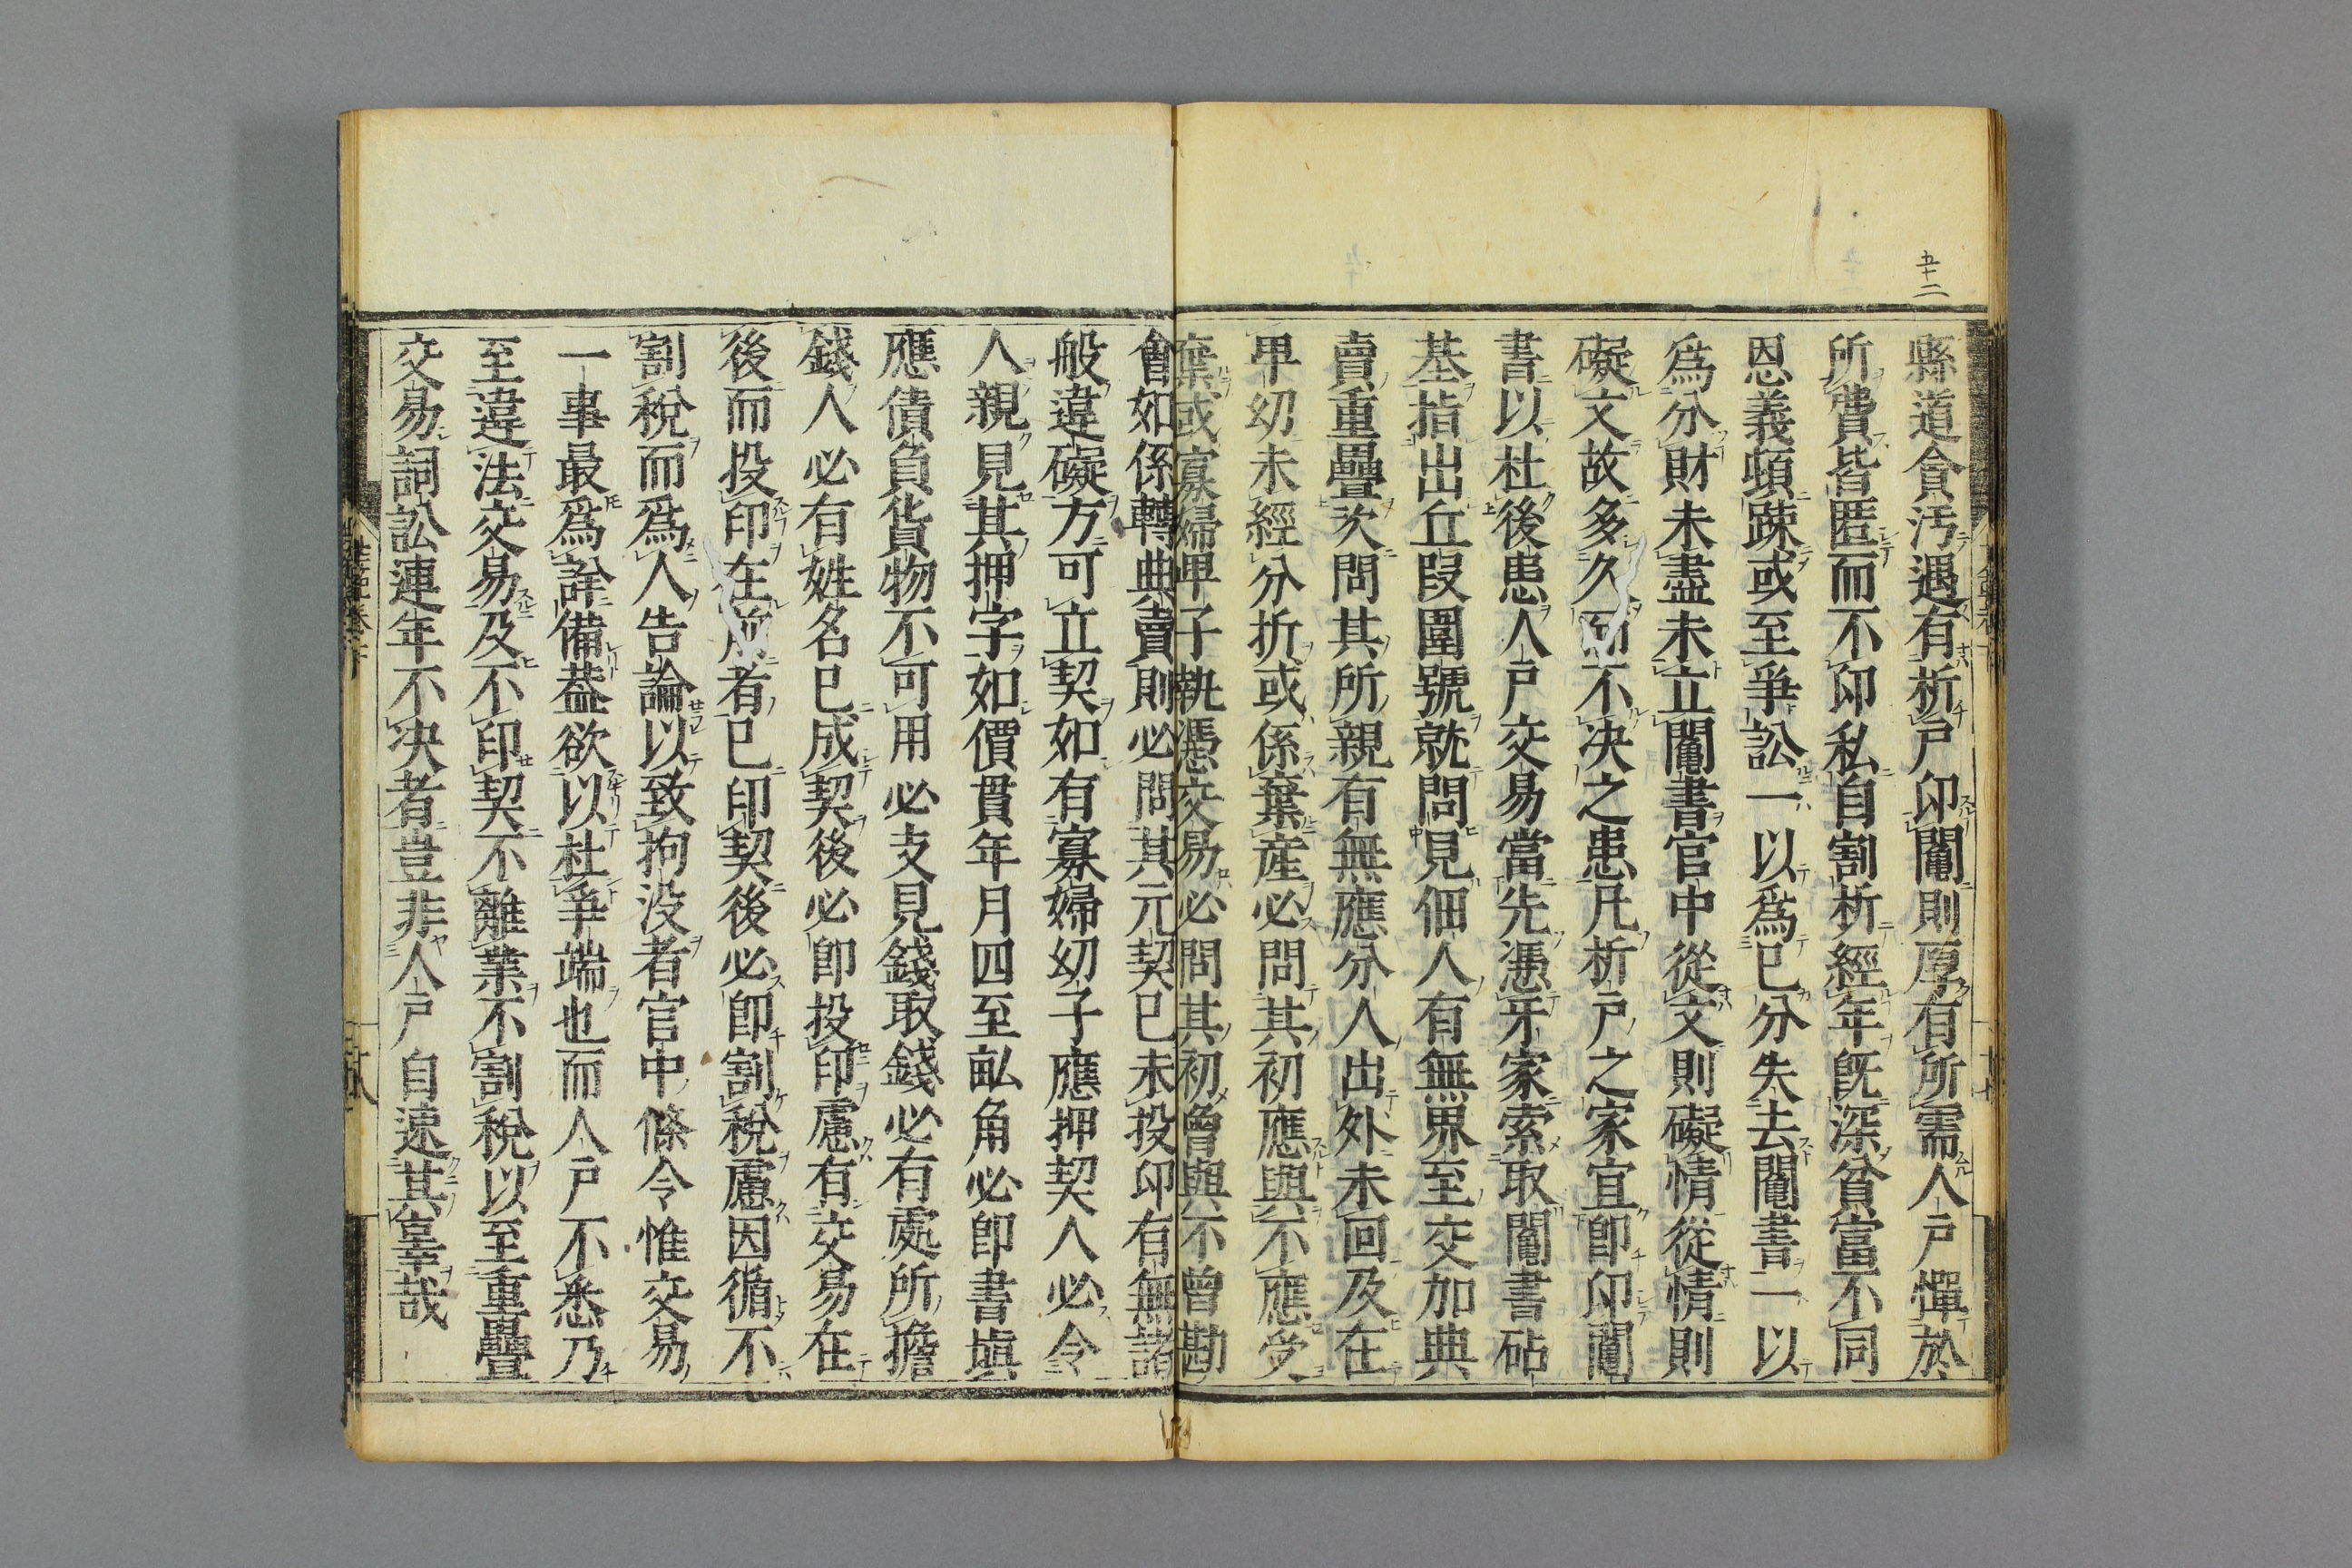 五十二
縣道貪汚遇有析戸印鬮則厚有所需人戸憚於
所費皆匿而不印私自割析經年旣深貧富不同
恩義頓踈或至爭訟一以爲巳分失去鬮書一以
爲分財未盡未立鬮書官中從文則礙情從情則
礙文故多久而不决之患凡析戸之家宜卽印鬮
書以杜後患人戸交易當先憑牙家索取鬮書砧
基指出丘叚圍號就問見佃人有無界至交加典
賣重疊次問其所親有無應分人出外未回及在
卑幼未經分折或係棄産必問其初應與不應受
棄或寡婦卑子執憑交易必問其初曾與不曾勘
會如係轉典賣則必問其元契巳未投印有無諸
般違礙方可立契如有寡婦幼子應押契人必令
人親見其押字如價貫年月四至畆角必卽書塡
應債負貨物不可用必支見錢取錢必有處所擔
錢人必有姓名巳成契後必卽投印慮有交易在
後而投印在前者巳印契後必卽割稅慮因循不
割稅而爲人告論以致拘没者官中條令惟交易
一事最爲詳備葢欲以杜爭端也而人戸不悉乃
至違法交易及不印契不離業不割稅以至重疊
交易詞訟連年不决者豈非人戸自速其辠哉